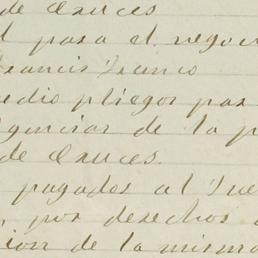 de Cruces
l para el negoci
Francis Franco
edio pliegos par
igencias de la p
de Cruces.
pagados al Jue
, por derechos
ion de la misma